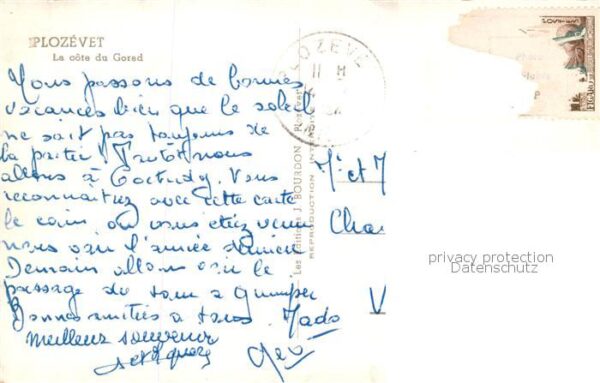 PLOZÉVET
La côte du Gored
Nous passons de bonnes
vacances bien que le soleil
ne soit pas toujours de
la partie. Tantôt nous
allons à Loctudy. Vous
reconnaitrez avec cette carte
le coin où vous étiez venu
nous voir l'année dernière
Demain allons voir le
passage du tour à Quimper
Bonnes amitiés à tous. Mado
meilleur souvenir
Géo
PLOZÉVE
11 H
Les Editions J. BOURDON
REPRODUCTION INTERDITE
M et M
Cha
V
privacy protection
Datenschutz
FIGARO